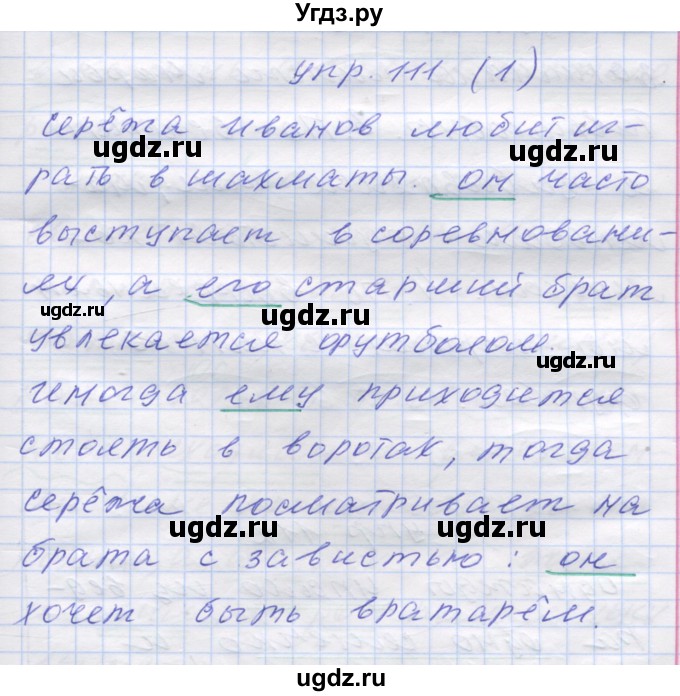 Угдз.ру
упр. 111 (1)
Серёжа Иванов любит иг-
ugdz.ru ugdz.ru
рать в шахматы. он часто
выступает в соревновани-
ях, а его старший брат
ugdz.ru ugdz.ru
увлекается футболом.
ugdz.ru
иногда ему приходится
стоять в воротах, тогда
Серёжа посматривает на
ugdz.ru ugdz.ru
брата с завистью: он
хочет быть вратарём.
ugdz.ru